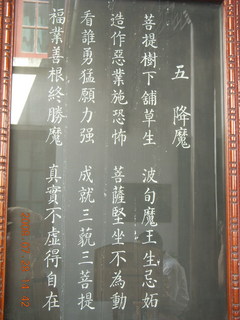 五 降魔
菩提樹下舖草生 波旬魔王生忌妬
造作惡業施恐怖 菩薩堅坐不為動
看誰勇猛願力强 成就三藐三菩提
福業善根終勝魔 真實不虛得自在